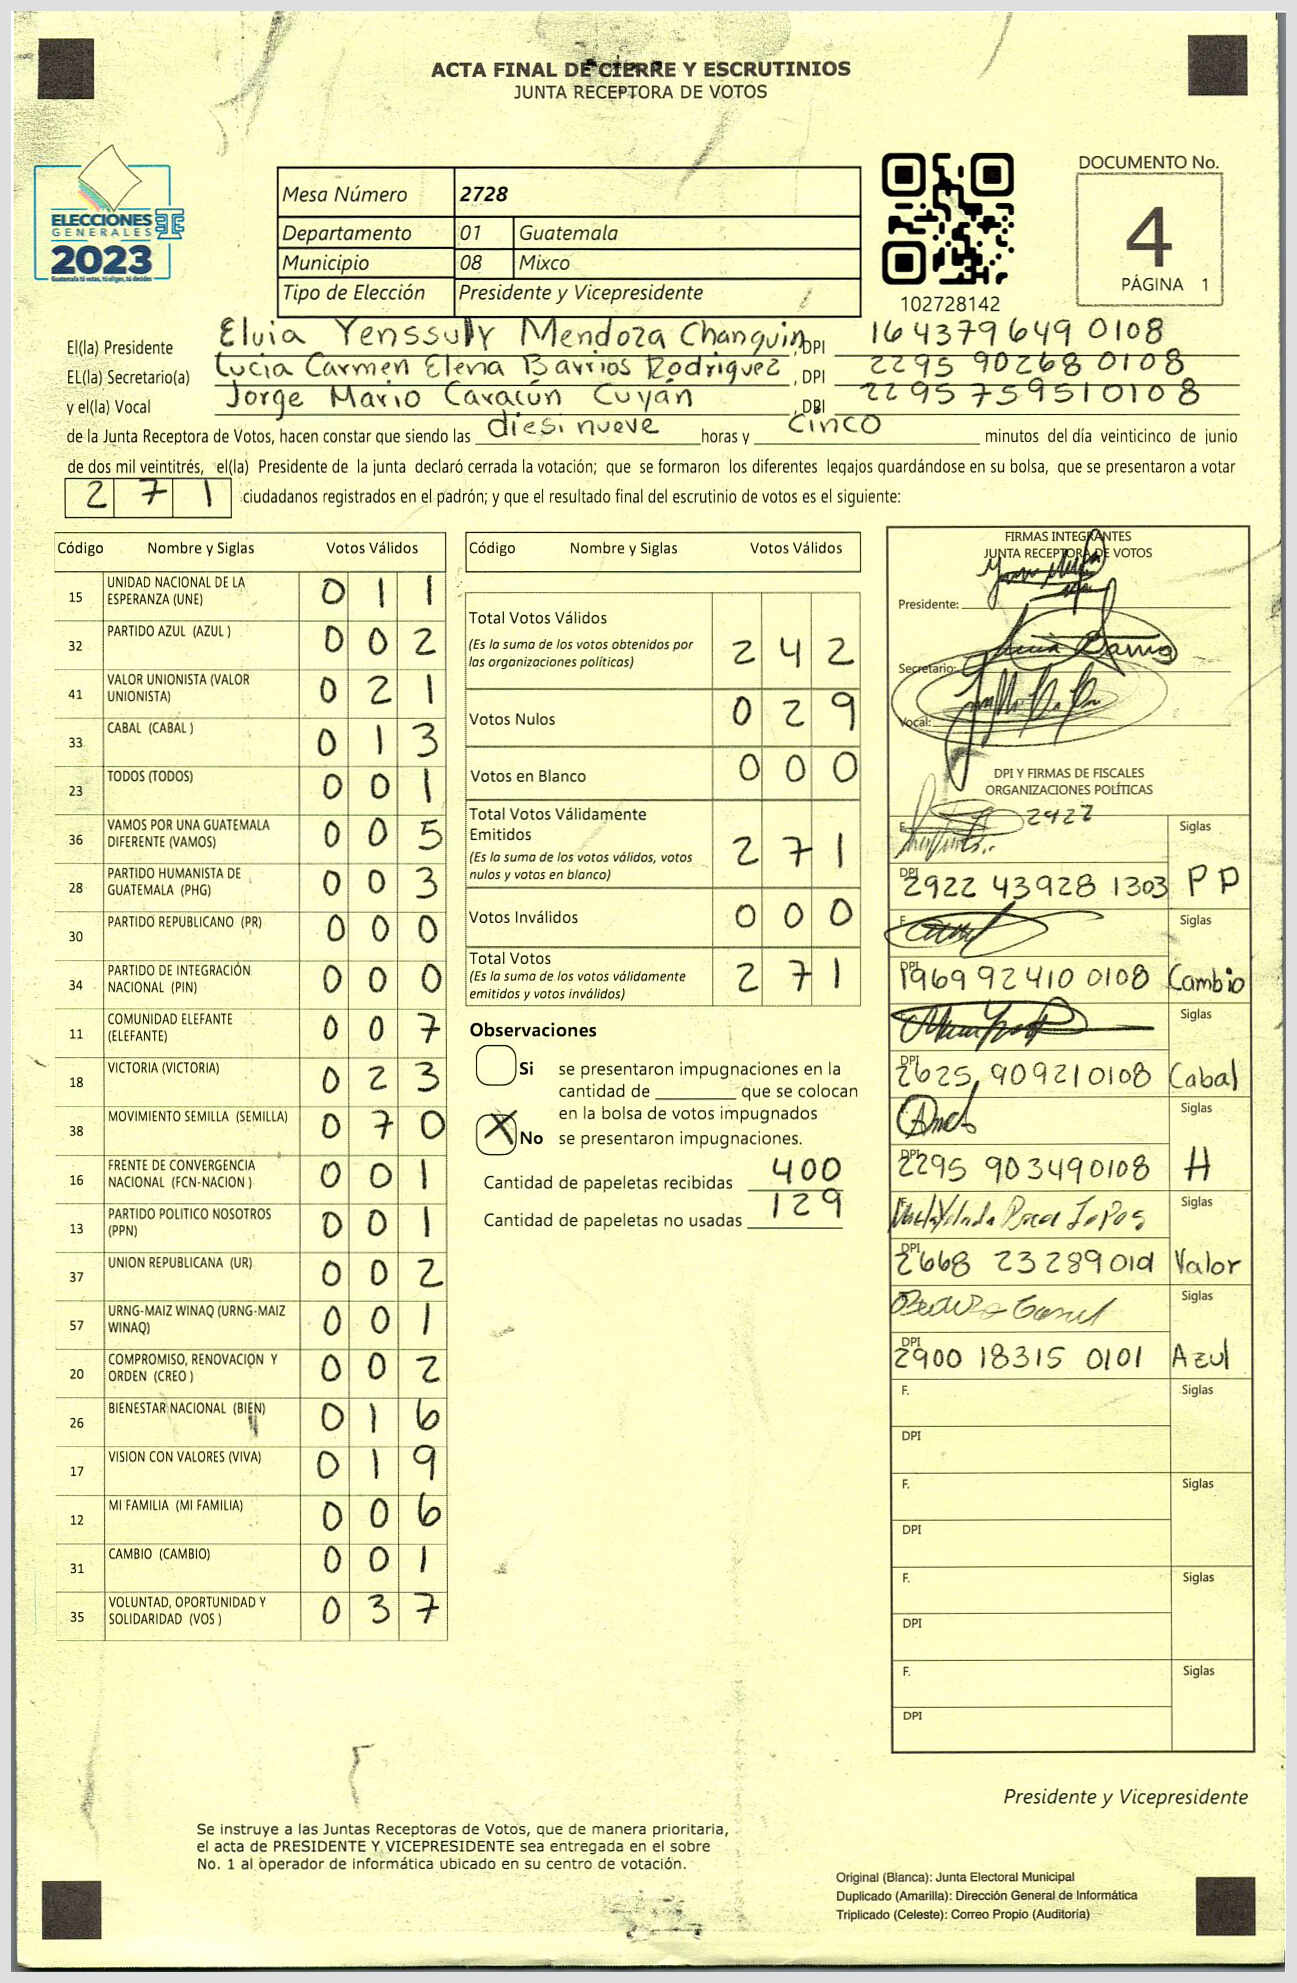 ACTA FINAL DE CIERRE Y ESCRUTINIOS
JUNTA RECEPTORA DE VOTOS
ELECCIONES
GENERALES
2023
Mesa Número 2728
Departamento 01 Guatemala
Municipio 08 Mixco
Tipo de Elección Presidente y Vicepresidente
102728142
DOCUMENTO No.
4
PÁGINA 1
El(la) Presidente Elvia Yenssuly Mendoza Changuin, DPI 164379649 0108
EL(la) Secretario(a) Lucia Carmen Elena Barrios Rodriguez, DPI 2295 90268 0108
y el(la) Vocal Jorge Mario Caracún Cuyán, DPI 2295759510108
de la Junta Receptora de Votos, hacen constar que siendo las diesi nueve horas y cinco minutos del día veinticinco de junio
de dos mil veintitrés, el(la) Presidente de la junta declaró cerrada la votación; que se formaron los diferentes legajos quardándose en su bolsa, que se presentaron a votar
2 7 1 ciudadanos registrados en el padrón; y que el resultado final del escrutinio de votos es el siguiente:
Código Nombre y Siglas Votos Válidos
15 UNIDAD NACIONAL DE LA
ESPERANZA (UNE) 0 1 1
32 PARTIDO AZUL (AZUL ) 0 0 2
41 VALOR UNIONISTA (VALOR
UNIONISTA) 0 2 1
33 CABAL (CABAL ) 0 1 3
23 TODOS (TODOS) 0 0 1
36 VAMOS POR UNA GUATEMALA
DIFERENTE (VAMOS) 0 0 5
28 PARTIDO HUMANISTA DE
GUATEMALA (PHG) 0 0 3
30 PARTIDO REPUBLICANO (PR) 0 0 0
34 PARTIDO DE INTEGRACIÓN
NACIONAL (PIN) 0 0 0
11 COMUNIDAD ELEFANTE
(ELEFANTE) 0 0 7
18 VICTORIA (VICTORIA) 0 2 3
38 MOVIMIENTO SEMILLA (SEMILLA) 0 7 0
16 FRENTE DE CONVERGENCIA
NACIONAL (FCN-NACION ) 0 0 1
13 PARTIDO POLITICO NOSOTROS
(PPN) 0 0 1
37 UNION REPUBLICANA (UR) 0 0 2
57 URNG-MAIZ WINAQ (URNG-MAIZ
WINAQ) 0 0 1
20 COMPROMISO, RENOVACION Y
ORDEN (CREO ) 0 0 2
26 BIENESTAR NACIONAL (BIEN) 0 1 6
17 VISION CON VALORES (VIVA) 0 1 9
12 MI FAMILIA (MI FAMILIA) 0 0 6
31 CAMBIO (CAMBIO) 0 0 1
35 VOLUNTAD, OPORTUNIDAD Y
SOLIDARIDAD (VOS ) 0 3 7
Código Nombre y Siglas Votos Válidos
Total Votos Válidos
(Es la suma de los votos obtenidos por
las organizaciones políticas) 2 4 2
Votos Nulos 0 2 9
Votos en Blanco 0 0 0
Total Votos Válidamente
Emitidos
(Es la suma de los votos válidos, votos
nulos y votos en blanco) 2 7 1
Votos Inválidos 0 0 0
Total Votos
(Es la suma de los votos válidamente
emitidos y votos inválidos) 2 7 1
Observaciones
Si se presentaron impugnaciones en la
cantidad de ________ que se colocan
en la bolsa de votos impugnados
X No se presentaron impugnaciones.
Cantidad de papeletas recibidas 400
Cantidad de papeletas no usadas 129
FIRMAS INTEGRANTES
JUNTA RECEPTORA DE VOTOS
Presidente:
Secretario:
Vocal:
DPI Y FIRMAS DE FISCALES
ORGANIZACIONES POLÍTICAS
F. 2922 Siglas
DPI 2922 43928 1303 PP
F. Siglas
DPI 1969 92410 0108 Cambio
Siglas
DPI 2625 909210108 Cabal
Siglas
DPI 2295 903490108 H
F. Siglas
DPI 2668 23289 0101 Valor
Siglas
DPI 2900 18315 0101 Azul
F. Siglas
DPI
F. Siglas
DPI
F. Siglas
DPI
F. Siglas
DPI
Presidente y Vicepresidente
Se instruye a las Juntas Receptoras de Votos, que de manera prioritaria,
el acta de PRESIDENTE Y VICEPRESIDENTE sea entregada en el sobre
No. 1 al operador de informática ubicado en su centro de votación.
Original (Blanca): Junta Electoral Municipal
Duplicado (Amarilla): Dirección General de Informática
Triplicado (Celeste): Correo Propio (Auditoría)